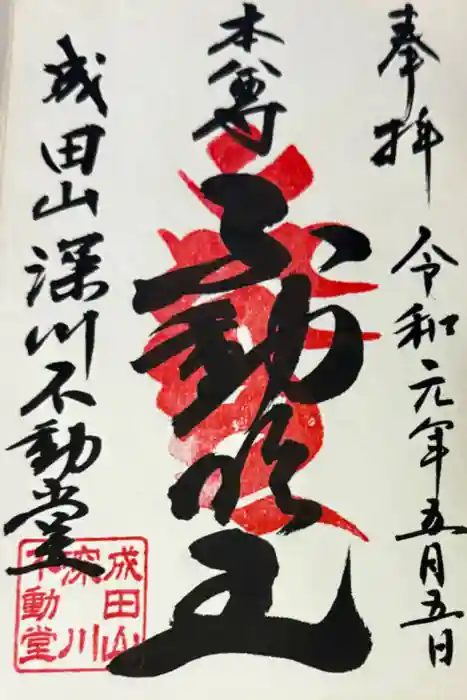 奉拝
令和元年五月五日
本尊
不動明王
成田山深川不動堂
成田山
深川
不動堂